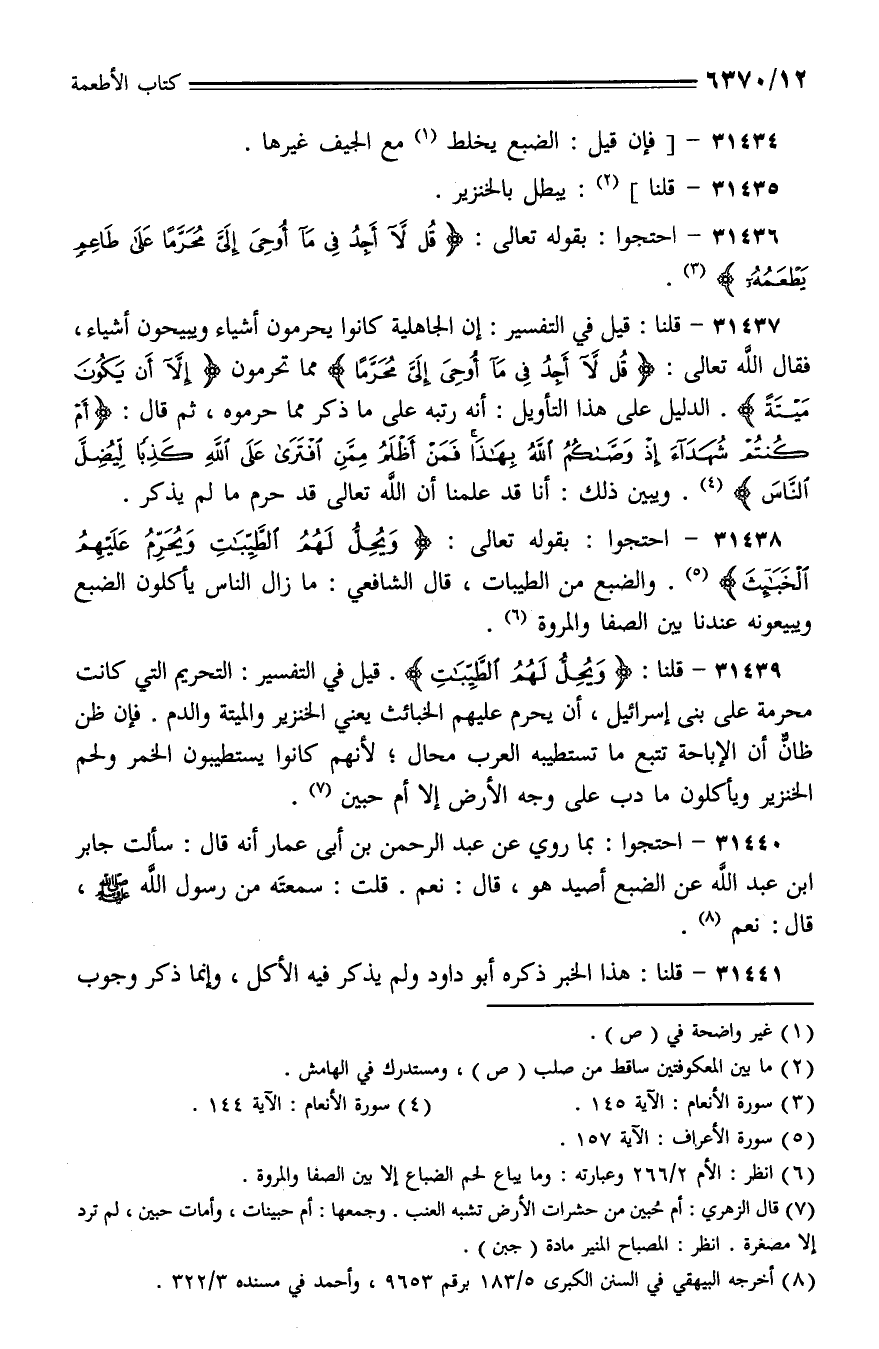 ٦٣٧٠/١٢ كتاب الأطعمة
٣١٤٣٤ - [ فإن قيل : الضبع يخلط (١) مع الجيف غيرها .
٣١٤٣٥ - قلنا ] (٢) : يبطل بالخنزير .
٣١٤٣٦ - احتجوا : بقوله تعالى : ﴿ قُل لَّآ أَجِدُ فِى مَآ أُوحِىَ إِلَىَّ مُحَرَّمًا عَلَىٰ طَاعِمٍ
يَطْعَمُهُۥٓ ﴾ (٣) .
٣١٤٣٧ - قلنا : قيل في التفسير : إن الجاهلية كانوا يحرمون أشياء ويبيحون أشياء ،
فقال اللَّه تعالى : ﴿ قُل لَّآ أَجِدُ فِى مَآ أُوحِىَ إِلَىَّ مُحَرَّمًا ﴾ مما تحرمون ﴿ إِلَّآ أَن يَكُونَ
مَيْتَةً ﴾ . الدليل على هذا التأويل : أنه رتبه على ما ذكر مما حرموه ، ثم قال : ﴿ أَمْ
كُنتُمْ شُهَدَآءَ إِذْ وَصَّىٰكُمُ ٱللَّهُ بِهَٰذَا ۚ فَمَنْ أَظْلَمُ مِمَّنِ ٱفْتَرَىٰ عَلَى ٱللَّهِ كَذِبًا لِّيُضِلَّ
ٱلنَّاسَ ﴾ (٤) . ويبين ذلك : أنا قد علمنا أن اللَّه تعالى قد حرم ما لم يذكر .
٣١٤٣٨ - احتجوا : بقوله تعالى : ﴿ وَيُحِلُّ لَهُمُ ٱلطَّيِّبَٰتِ وَيُحَرِّمُ عَلَيْهِمُ
ٱلْخَبَٰٓئِثَ ﴾ (٥) . والضبع من الطيبات ، قال الشافعي : ما زال الناس يأكلون الضبع
ويبيعونه عندنا بين الصفا والمروة (٦) .
٣١٤٣٩ - قلنا : ﴿ وَيُحِلُّ لَهُمُ ٱلطَّيِّبَٰتِ ﴾ . قيل في التفسير : التحريم التي كانت
محرمة على بنى إسرائيل ، أن يحرم عليهم الخبائث يعني الخنزير والميتة والدم . فإن ظن
ظانٌّ أن الإباحة تتبع ما تستطيبه العرب محال ؛ لأنهم كانوا يستطيبون الخمر ولحم
الخنزير ويأكلون ما دب على وجه الأرض إلا أم حبين (٧) .
٣١٤٤٠ - احتجوا : بما روي عن عبد الرحمن بن أبى عمار أنه قال : سألت جابر
ابن عبد اللَّه عن الضبع أصيد هو ، قال : نعم . قلت : سمعتَه من رسول اللَّه ﷺ ،
قال : نعم (٨) .
٣١٤٤١ - قلنا : هذا الخبر ذكره أبو داود ولم يذكر فيه الأكل ، وإنما ذكر وجوب
(١) غير واضحة في ( ص ) .
(٢) ما بين المعكوفتين ساقط من صلب ( ص ) ، ومستدرك في الهامش .
(٣) سورة الأنعام : الآية ١٤٥ . (٤) سورة الأنعام : الآية ١٤٤ .
(٥) سورة الأعراف : الآية ١٥٧ .
(٦) انظر : الأم ٢٦٦/٢ وعبارته : وما يباع لحم الضباع إلا بين الصفا والمروة .
(٧) قال الزهري : أم حُبين من حشرات الأرض تشبه العنب . وجمعها : أم حبينات ، وأمات حبين ، لم ترد
إلا مصغرة . انظر : المصباح المنير مادة ( جبن ) .
(٨) أخرجه البيهقي في السنن الكبرى ١٨٣/٥ برقم ٩٦٥٣ ، وأحمد في مسنده ٣٢٢/٣ .